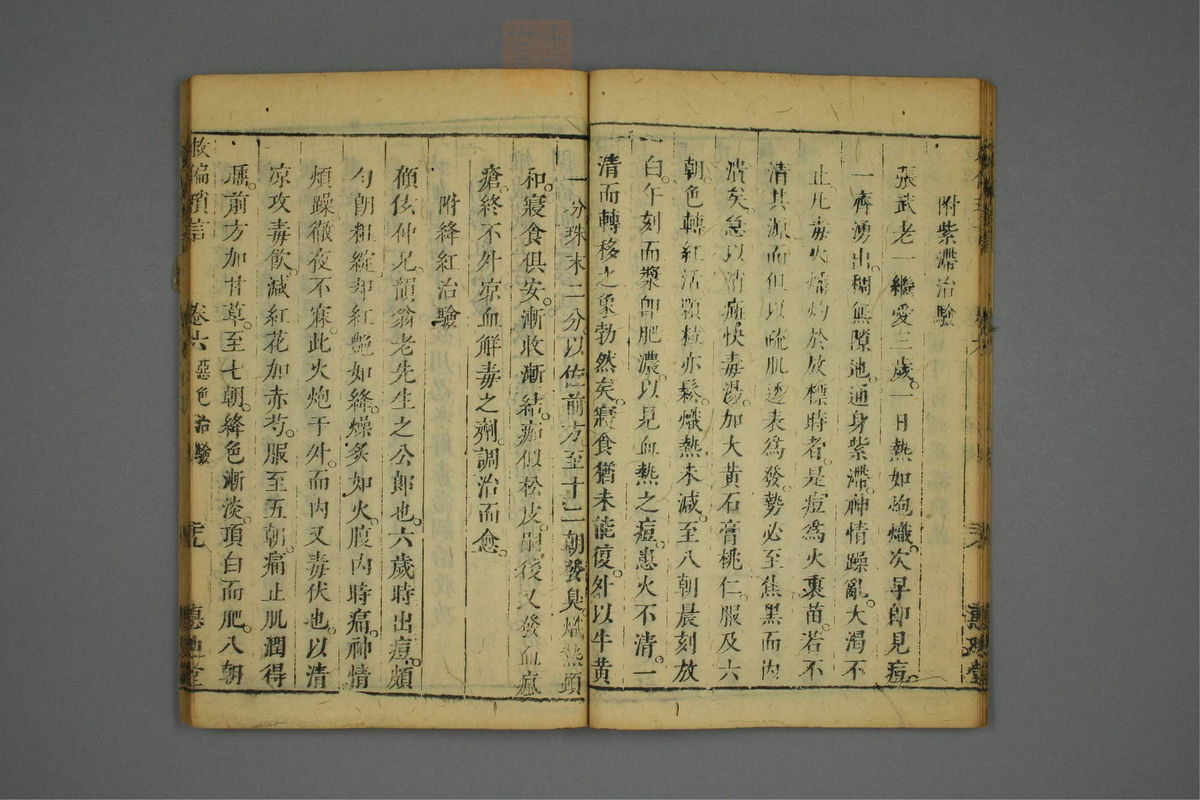 附紫滯治驗
張武老一繼愛三歲。一日熱如炮熾。次早即見痘。
一齊湧出。稠無隙地。通身紫滯。神情躁亂。大渴不
止。凡毒火燔灼於放標時者。是痘爲火裹苗。若不
清其源。而但以疏肌透表爲發。勢必至焦黑而內
潰矣。急以消瘢快毒湯。加大黃石膏桃仁。服及六
朝。色轉紅活。顆粒亦鬆。熾熱未減。至八朝晨刻放
白。午刻而漿即肥濃。以見血熱之痘。患火不清。一
清而轉移之象勃然矣。寢食猶未能復。外以牛黃
一分珠末二分。以佐前方。至十二朝。發臭熾熱頭
和。寢食俱安。漸收漸結。痂似松皮。嗣後又發血瘋
瘡。終不外凉血解毒之劑。調治而愈。
附絳紅治驗
傾伭仲兄。韻翁老先生之公郎也。六歲時出痘。頗
勻朗粗綻。却紅艷如絳。燥炙如火。腹內時痛。神情
煩躁。徹夜不寐。此火炮于外。而內又毒伏也。以清
凉攻毒飲。減紅花加赤芍。服至五朝。痛止肌潤得
痲。前方加甘草。至七朝。絳色漸淡。頂白而肥。八朝
救偏瑣言 卷六 惡色治驗 元 惠迪堂